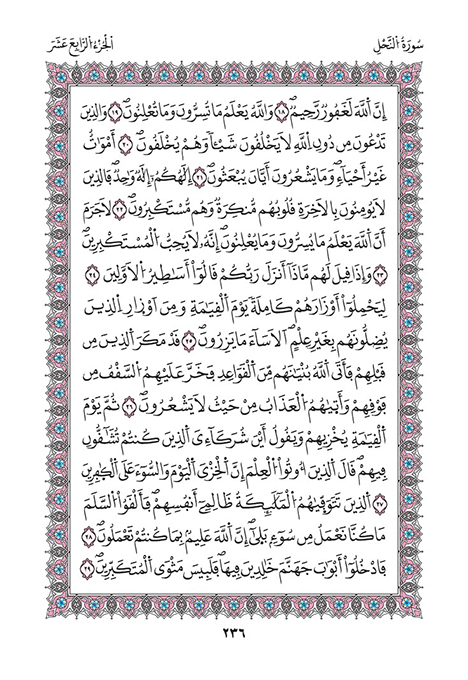 سُورَةُ النَّحْلِ
الْجُزْءُ الرَّابِعَ عَشَرَ
إِنَّ اَللَّهَ لَغَفُورٌ رَّحِيمٌ ١٨ وَاللَّهُ يَعْلَمُ مَا تُسِرُّونَ وَمَا تُعْلِنُونَ ١٩ وَالذِينَ
تَدْعُونَ مِن دُونِ اِللَّهِ لَا يَخْلُقُونَ شَيْـٔاً وَهُمْ يُخْلَقُونَ ٢٠ أَمْوَٰتٌ
غَيْرُ أَحْيَآءٍ وَمَا يَشْعُرُونَ أَيَّانَ يُبْعَثُونَ ٢١ إِلَٰهُكُمُۥ إِلَٰهٌ وَٰحِدٌ فَالذِينَ
لَا يُؤْمِنُونَ بِالَاخِرَةِ قُلُوبُهُم مُّنكِرَةٌ وَهُم مُّسْتَكْبِرُونَ ٢٢ لَا جَرَمَ
أَنَّ اَللَّهَ يَعْلَمُ مَا يُسِرُّونَ وَمَا يُعْلِنُونَ إِنَّهُۥ لَا يُحِبُّ اُلْمُسْتَكْبِرِينَ
٢٣ وَإِذَا قِيلَ لَهُم مَّاذَآ أَنزَلَ رَبُّكُمْ قَالُوٓاْ أَسَٰطِيرُ اُلَاوَّلِينَ ٢٤
لِيَحْمِلُوٓاْ أَوْزَارَهُمْ كَامِلَةً يَوْمَ اَلْقِيَٰمَةِ وَمِنَ اَوْزِارِ اِلذِينَ
يُضِلُّونَهُم بِغَيْرِ عِلْمٍ اَلَا سَآءَ مَا يَزِرُونَ ٢٥ قَدْ مَكَرَ اَلذِينَ مِن
قَبْلِهِمْ فَأَتَى اَللَّهُ بُنْيَٰنَهُم مِّنَ اَلْقَوَاعِدِ فَخَرَّ عَلَيْهِمُ اُلسَّقْفُ مِن
فَوْقِهِمْ وَأَتَىٰهُمُ اُلْعَذَابُ مِنْ حَيْثُ لَا يَشْعُرُونَ ٢٦ ثُمَّ يَوْمَ
اَلْقِيَٰمَةِ يُخْزِيهِمْ وَيَقُولُ أَيْنَ شُرَكَآءِيَ اَلذِينَ كُنتُمْ تُشَٰٓقُّونِ
فِيهِمْ قَالَ اَلذِينَ أُوتُواْ اُلْعِلْمَ إِنَّ اَلْخِزْيَ اَلْيَوْمَ وَالسُّوٓءَ عَلَى اَلْكَٰفِرِينَ
٢٧ اَلذِينَ تَتَوَفَّىٰهُمُ اُلْمَلَٰٓئِكَةُ ظَالِمِےٓ أَنفُسِهِمْ فَأَلْقَوُاْ اُلسَّلَمَ
مَا كُنَّا نَعْمَلُ مِن سُوٓءٍ بَلَىٰٓ إِنَّ اَللَّهَ عَلِيمٌ بِمَا كُنتُمْ تَعْمَلُونَ ٢٨
فَادْخُلُوٓاْ أَبْوَٰبَ جَهَنَّمَ خَٰلِدِينَ فِيهَا فَلَبِيسَ مَثْوَى اَلْمُتَكَبِّرِينَ ٢٩
٢٣٦